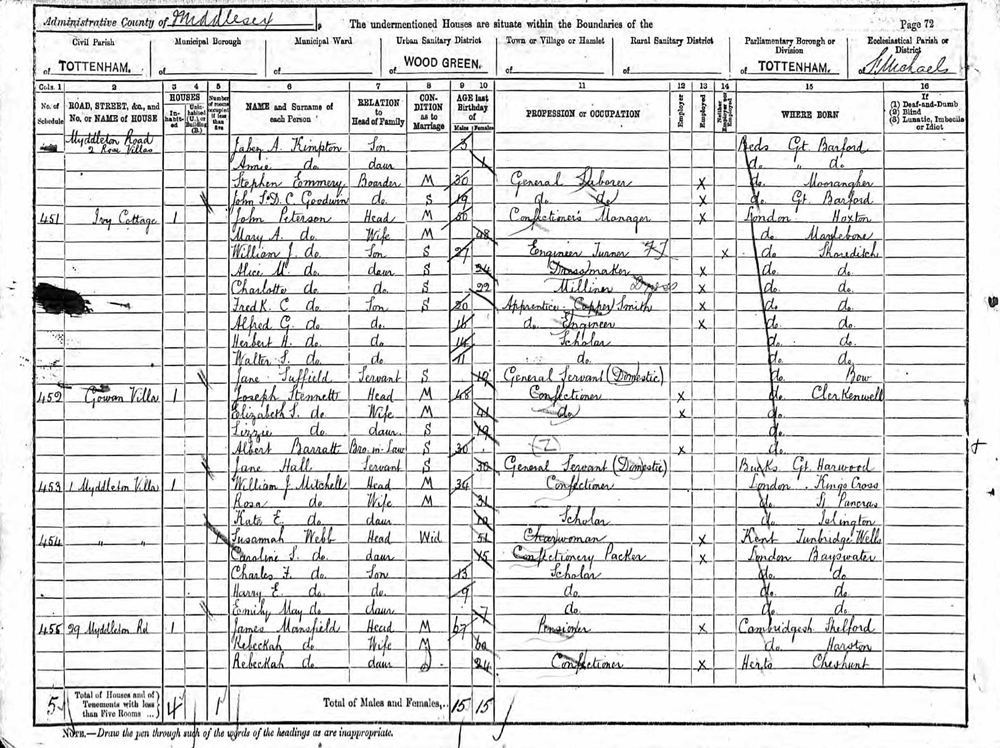 Administrative County of Middlesex, The undermentioned Houses are situate within the Boundaries of the Page 72
Civil Parish Municipal Borough Municipal Ward Urban Sanitary District Town or Village or Hamlet Rural Sanitary District Parliamentary Borough or Division Ecclesiastical Parish or District
of TOTTENHAM. of of of WOOD GREEN. of of of TOTTENHAM. of St Michaels
Cols. 1 2 3 4 5 6 7 8 9 10 11 12 13 14 15 16
No. of Schedule ROAD, STREET, &c., and No. or NAME of HOUSE HOUSES Inhabited Uninhabited (U.), or Building (B.) Number of rooms occupied if less than five NAME and Surname of each Person RELATION to Head of Family CONDITION as to Marriage AGE last Birthday of Males Females PROFESSION or OCCUPATION Employer Employed Neither Employer nor Employed WHERE BORN If (1) Deaf-and-Dumb (2) Blind (3) Lunatic, Imbecile or Idiot
Myddleton Road
2 Rose Villas Jabez A. Kimpton Son 3 Beds Gt. Barford
Annie do. daur 1 do. " do.
Stephen Emmery Boarder M 30 General Laborer X do.
John S. D. C. Goodwin do. S 19 do. do. X do. Gt. Barford
451 Ivy Cottage 1 John Peterson Head M 50 Confectioner's Manager X London Hoxton
Mary A. do. Wife M 48 do. Marylebone
William J. do. Son S 27 Engineer Turner X do. Shoreditch
Alice M. do. daur S 24 Dressmaker X do. do.
Charlotte do. do. S 22 Milliner Dress X do. do.
Fredk. C do. Son S 20 Apprentice Copper Smith X do. do.
Alfred G. do. do. 16 do. Engineer X do. do.
Herbert H. do. do. 14 Scholar do. do.
Walter S. do. do. 11 do. do. do.
Jane Suffield Servant S 19 General Servant (Domestic) do. Bow
452 Gowan Villa 1 Joseph Stennett Head M 48 Confectioner X do. Clerkenwell
Elizabeth S. do. Wife M 41 do X do.
Lizzie do. daur. S 19 do.
Albert Barratt Bro. in Law S 30 X do.
Jane Hall Servant S 30 General Servant (Domestic) Bucks Gt. Harwood
453 1 Myddleton Villa 1 William J. Mitchell Head M 34 Confectioner London Kings Cross
Rosa do. Wife M 31 do. St Pancras
Kate E. do. daur 10 Scholar do. Islington
454 " " Susannah Webb Head Wid 51 Charwoman X Kent Tunbridge Wells
Caroline S. do. daur 15 Confectionery Packer X London Bayswater
Charles F. do. Son 13 Scholar do. do.
Harry E. do. do. 9 do. do. do.
Emily May do. daur 7 do. do. do.
455 29 Myddleton Rd 1 James Mansfield Head M 67 Pensioner X Cambridgesh Shelford
Rebeckah do. Wife M 60 do. Harston
Rebeckah do. daur 24 Confectioner X Herts Cheshunt
5 Total of Houses and of Tenements with less than Five Rooms ... 4 1 Total of Males and Females... 15 15
NOTE.—Draw the pen through such of the words of the headings as are inappropriate.